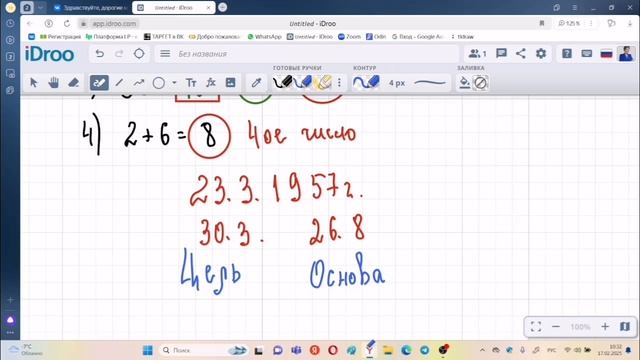 Здравствуйте, дорогие
Untitled - iDroo
app.idroo.com
Untitled - iDroo
125 %
Регистрация
ТАРГЕТ в ВК
Добро пожалов
WhatsApp
Одкл
Вход - Google Acc
iDroo
Без названия
1
RU
ГОТОВЫЕ РУЧКИ
КОНТУР
ЗАЛИВКА
4 px
4) 2 + 6 = 8 4ое число
23. 3. 1957г.
30. 3. 26. 8
Цель Основа
100%
3°C
Облачно
Поиск
РУС
10:32
17.02.2025